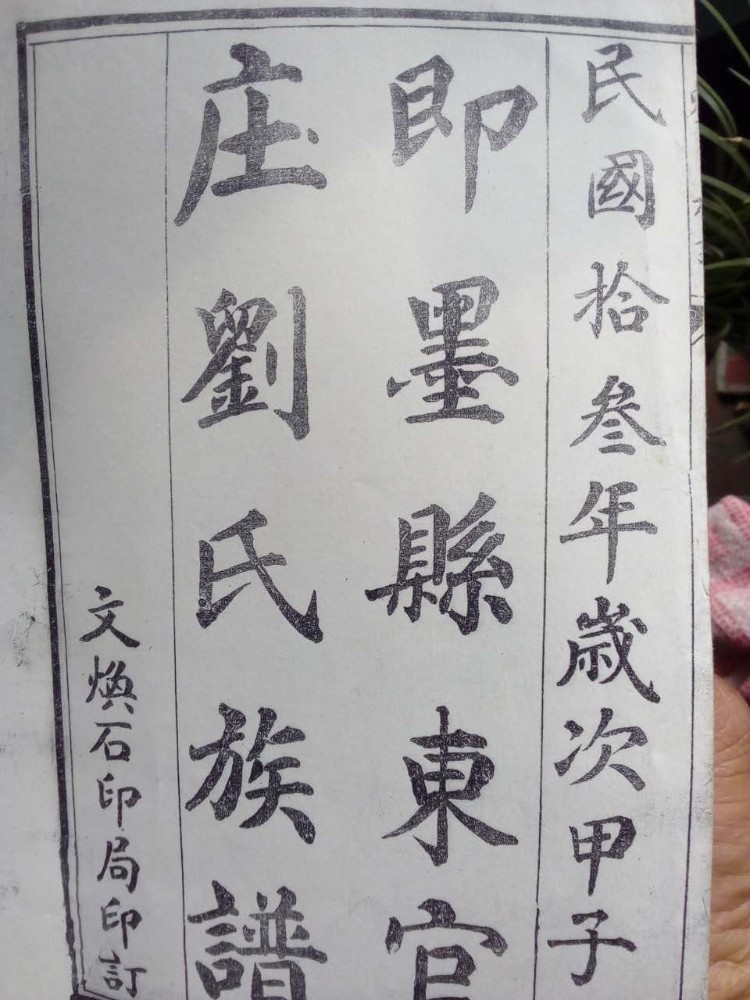 民國拾叁年歲次甲子
即墨縣東官
庄劉氏族譜
文煥石印局印訂